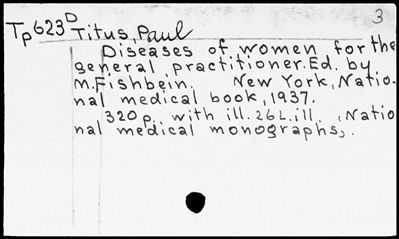 3
Tp623D Titus, Paul
Diseases of women for the
general practitioner. Ed. by
M. Fishbein. New York, Natio-
nal medical book, 1937.
320 p. with ill. 26 L. ill. (Natio
nal medical monographs).